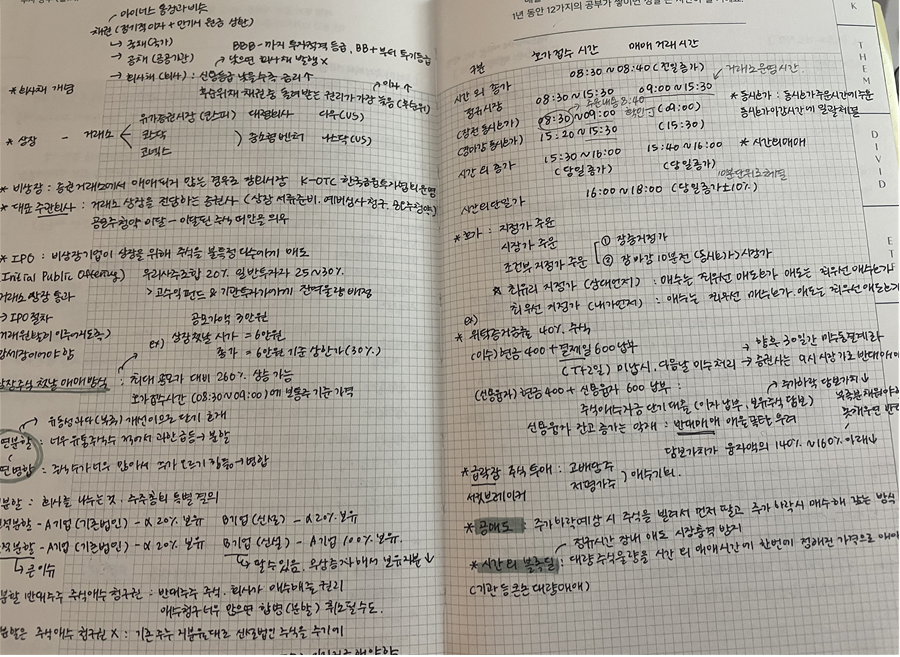 아이너스 통장과 비슷
채권 (정기적 이자 + 만기시 원금 상환)
↳ 국채 (국가) BBB-까지 투자적격 등급, BB+부터 투기등급
→ 공채 (공공기관) 낮으면 회사채 발행 X
* 회사채 개념 → 회사채 (회사) : 신용등급 낮을수록 금리↑ 이자↑
후순위채 채권중 돌려받는 권리가 가장 늦음 (후순위)
유가증권시장 (코스피) 대형회사 다우(US)
* 상장 - 거래소 코스닥 중소형벤처 나스닥(US)
코넥스
* 비상장 : 증권거래소에서 매매되지 않는 경우로 장외시장 K-OTC 한국금융투자협회운영
* 대표 주관회사 : 거래소 상장을 전담하는 증권사 (상장 서류준비, 예비심사청구, 공모주청약)
공모주청약 미달 - 미달된 주식 떠안을 의무
* IPO : 비상장기업이 상장을 위해 주식을 불특정 다수에게 매도
Initial Public Offering) 우리사주조합 20% 일반투자자 25~30%
거래소 상장 통과 > 고수익펀드 & 기관투자가에게 잔여물량 배정
→ IPO 절차 공모가액 3만원
ex) 상장첫날 시가 = 6만원
종가 = 6만원 기준 상한가 (30%)
상장주식 첫날 매매방식 : 최대 공모가 대비 260% 상승 가능
호가접수시간 (08:30~09:00)에 보통주 기준가격
액면분할 : 너무 유통주식수 적어서 과한급등 → 분할
액면병합 : 주식수가 너무 많아서 주가 오르기 힘듦 → 병합
분할 : 회사를 나누는 것. 주주총회 특별결의
인적분할 - A기업 (기존법인) - α 20% 보유 B기업 (신설) - α 20% 보유
물적분할 - A기업 (기존법인) - α 20% 보유 B기업 (신설) - A기업 100% 보유
↳ 큰이슈 ↳ 팔 수 있음. 유상증자해서 보유지분↓
분할 반대주주 주식매수 청구권 : 반대주주 주식. 회사가 매수해줄 권리
매수청구 너무 많으면 합병 (분할) 취소될수도.
분할은 주식매수 청구권 X : 기존주주 지분율대로 신설법인 주식을 주기에
1년 동안 12가지의 공부가
구분 호가접수 시간 매매 거래시간
시간외 종가 08:30~08:40 (전일종가) 거래소운영시간
정규시장 08:30~15:30 09:00~15:30
(장전 동시호가) 08:30~09:00 (09:00) * 동시호가 : 동시호가주문시간에 주문
(장마감 동시호가) 15:20~15:30 (15:30) 동시호가 마감시간에 일괄체결
시간외 종가 15:30~16:00 15:40~16:00 * 시간외매매
(당일종가) (당일종가)
10분단위로체결
시간외단일가 16:00~18:00 (당일종가±10%)
* 호가 : 지정가 주문
시장가 주문 ① 장중지정가
조건부지정가 주문 ② 장마감 10분전 (동시호가) 시장가
* 최유리 지정가 (상대먼저) : 매수는 최우선 매도호가 매도는 최우선 매수호가
최우선 지정가 (내가먼저) : 매수는 최우선 매수호가. 매도는 최우선 매도호가
ex)
* 위탁증거금률 40% 주식
(미수) 현금 400 + 결제일 600 납부 → 향후 30일간 미수동결계좌
(T+2일) 미납시, 다음날 미수처리 → 증권사는 9시 시장가로 반대매매
(신용융자) 현금 400 + 신용융자 600 납부 : 주가하락 담보가치↓
주식매수자금 단기대출 (이자납부, 보유주식담보)
신용융자 잔고 증가는 악재 : 반대매매 매물폭탄 우려
담보가치가 융자액의 140%~160% 아래↓
* 급락장 주식투매 : 고배당주
서킷브레이커 저평가주 ) 매수기회.
* 공매도 : 주가하락예상 시 주식을 빌려서 먼저 팔고 주가 하락시 매수해 갚는 방식
정규시간 장내 매도 시장충격 방지
* 시간외 블록딜 : 대량 주식물량을 시간외 매매시간에 한번에 정해진 가격으로 매매
(기관 등 큰손 대량매매)
K
THEM
DIVID
ET